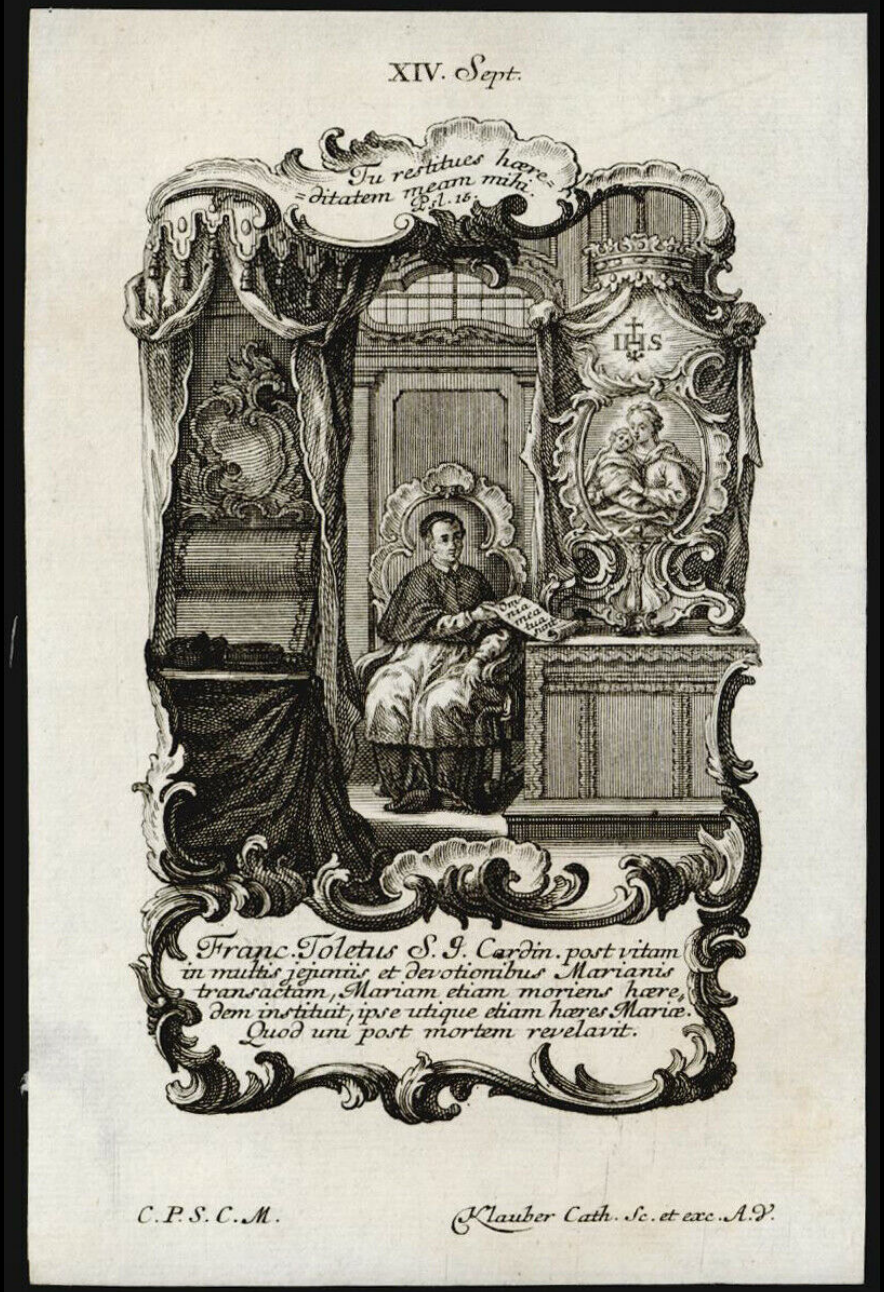 XIV. Sept.
Tu restitues hære=
=ditatem meam mihi.
Psl. 15.
IHS
Om
nia
mea
tua
sunt
Franc. Toletus S. J. Cardin. post vitam
in multis jejuniis et devotionibus Marianis
transactam, Mariam etiam moriens hære,
dem instituit, ipse utique etiam hæres Mariæ.
Quod uni post mortem revelavit.
C. P. S. C. M.
Klauber Cath. Sc. et exc. A. V.